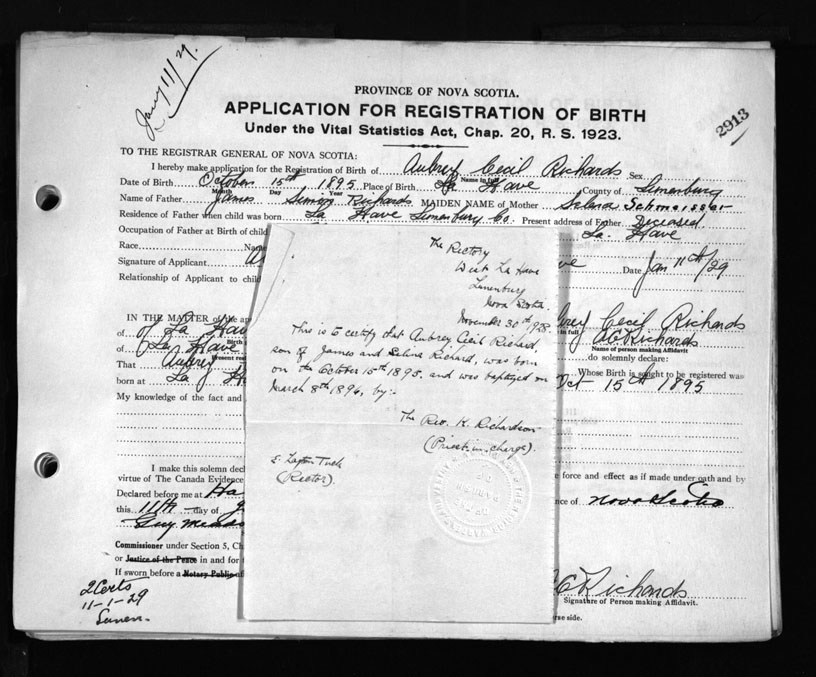 Jany 11/29.
PROVINCE OF NOVA SCOTIA.
APPLICATION FOR REGISTRATION OF BIRTH
Under the Vital Statistics Act, Chap. 20, R. S. 1923.
2913
TO THE REGISTRAR GENERAL OF NOVA SCOTIA:
I hereby make application for the Registration of Birth of Aubrey Cecil Richards Sex
Name in full
Date of Birth October 15th 1895 Place of Birth La Have County of Lunenburg
Month Day Year
Name of Father James Simon Richards MAIDEN NAME of Mother
Residence of Father when child was born La Have Lunenburg Co. Present address of Father Diceased
Occupation of Father at Birth of child La Have
Race Name
Signature of Applicant Date Jan 11th/29
Relationship of Applicant to child
The Rectory
West La Have
Lunenburg
Nova Scotia
November 30th, 1928.
This is to certify that Aubrey Cecil Richard,
son of James and Selena Richard, was born
on the October 15th 1895. and was baptized on
March 8th 1896, by:-
The Rev. K. Richardson
(Priest-in-charge).
(Rector).
IN THE MATTER of the ap rey Cecil Richards
of La Hav Birth in full A C Richards
of La Have Name of person making Affidavit
Present res do solemnly declare:
That Aubrey Whose Birth is sought to be registered was
born at La H Oct 15th 1895
My knowledge of the fact and
I make this solemn decl e force and effect as if made under oath and by
virtue of The Canada Evidence
Declared before me at Ha nce of Nova Scotia
this 11th day of J
Commissioner under Section 5, Ch
or Justice of the Peace in and for t
If sworn before a Notary Public af
C Richards
Signature of Person making Affidavit.
erse side.
2 Certs
11-1-29